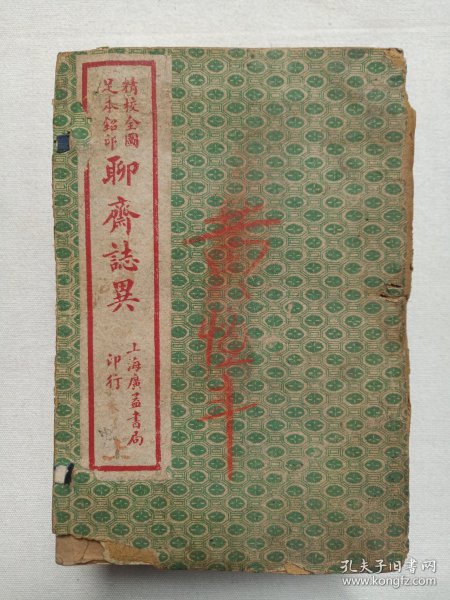 精校全圖
足本鉛印
聊齋誌異
上海廣益書局
印行
黄
孔夫子旧书网
www.kongfz.com